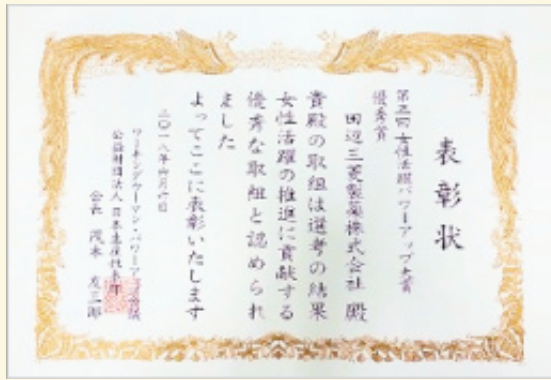 表彰状
第三回 女性活躍パワーアップ大賞
優秀賞
田辺三菱製薬株式会社 殿
貴殿の取組は選考の結果
女性活躍の推進に貢献する
優秀な取組と認められ
ました
よってここに表彰いたします
二〇一八年 月 日
ワーキングウーマン・パワーアップ会議
公益財団法人 日本生産性本部
会長 茂木 友三郎